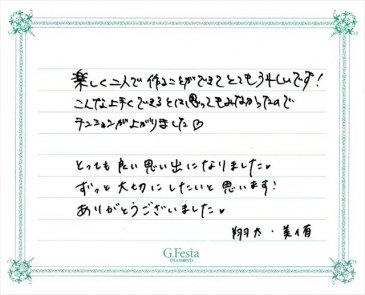 楽しく二人で作ることができてとてもうれしいです!
こんな上手くできるとは思ってもみなかったので
テンションが上がりました♡
とっても良い思い出になりました♥
ずっと大切にしたいと思います!
ありがとうございました♥
翔太・美有
G.Festa
DIAMOND